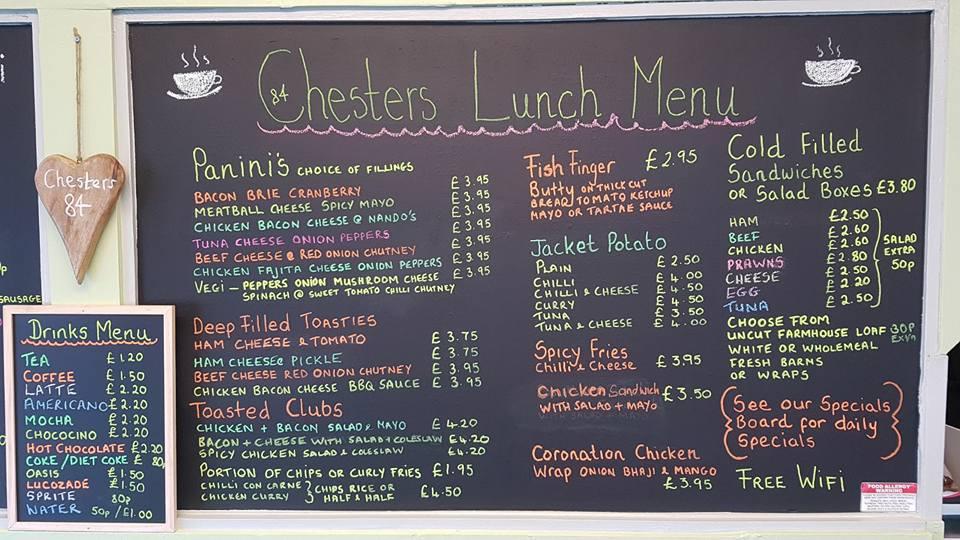 Chesters
84
SAUSAGE
Drinks Menu
TEA £1.20
COFFEE £1.50
LATTE £2.20
AMERICANO £2.20
MOCHA £2.20
CHOCOCINO £2.20
HOT CHOCOLATE £2.20
COKE/DIET COKE £ 80p
OASIS £1.50
LUCOZADE £1.50
SPRITE 80p
WATER 50p/£1.00
84 Chesters Lunch Menu
Panini's CHOICE OF FILLINGS
BACON BRIE CRANBERRY £3.95
MEATBALL CHEESE SPICY MAYO £3.95
CHICKEN BACON CHEESE @ NANDO'S £3.95
TUNA CHEESE ONION PEPPERS £3.95
BEEF CHEESE @ RED ONION CHUTNEY £3.95
CHICKEN FAJITA CHEESE ONION PEPPERS £3.95
VEGI - PEPPERS ONION MUSHROOM CHEESE £3.95
SPINACH @ SWEET TOMATO CHILLI CHUTNEY
Deep Filled Toasties
HAM CHEESE & TOMATO £3.75
HAM CHEESE @ PICKLE £3.75
BEEF CHEESE RED ONION CHUTNEY £3.95
CHICKEN BACON CHEESE BBQ SAUCE £3.95
Toasted Clubs
CHICKEN + BACON SALAD & MAYO £4.20
BACON + CHEESE WITH SALAD + COLESLAW £4.20
SPICY CHICKEN SALAD & COLESLAW £4.20
PORTION OF CHIPS OR CURLY FRIES £1.95
CHILLI CON CARNE } CHIPS RICE OR
CHICKEN CURRY } HALF & HALF £4.50
Fish Finger £2.95
Butty ON THICK CUT
BREAD TOMATO KETCHUP
MAYO OR TARTAE SAUCE
Jacket Potato
PLAIN £2.50
CHILLI £4.00
CHILLI & CHEESE £4.50
CURRY £4.50
TUNA £3.50
TUNA & CHEESE £4.00
Spicy Fries
Chilli & Cheese £3.95
Chicken Sandwich £3.50
WITH SALAD + MAYO
Coronation Chicken
Wrap ONION BHAJI & MANGO
£3.95
Cold Filled
Sandwiches
OR Salad Boxes £3.80
HAM £2.50
BEEF £2.60
CHICKEN £2.60
PRAWNS £2.80
CHEESE £2.50
EGG £2.20
TUNA £2.50
SALAD
EXTRA
50p
CHOOSE FROM
UNCUT FARMHOUSE LOAF 30P EXTRA
WHITE OR WHOLEMEAL
FRESH BARNS
OR WRAPS
See our Specials
Board for daily
Specials
FREE WIFI
FOOD ALLERGY
WARNING